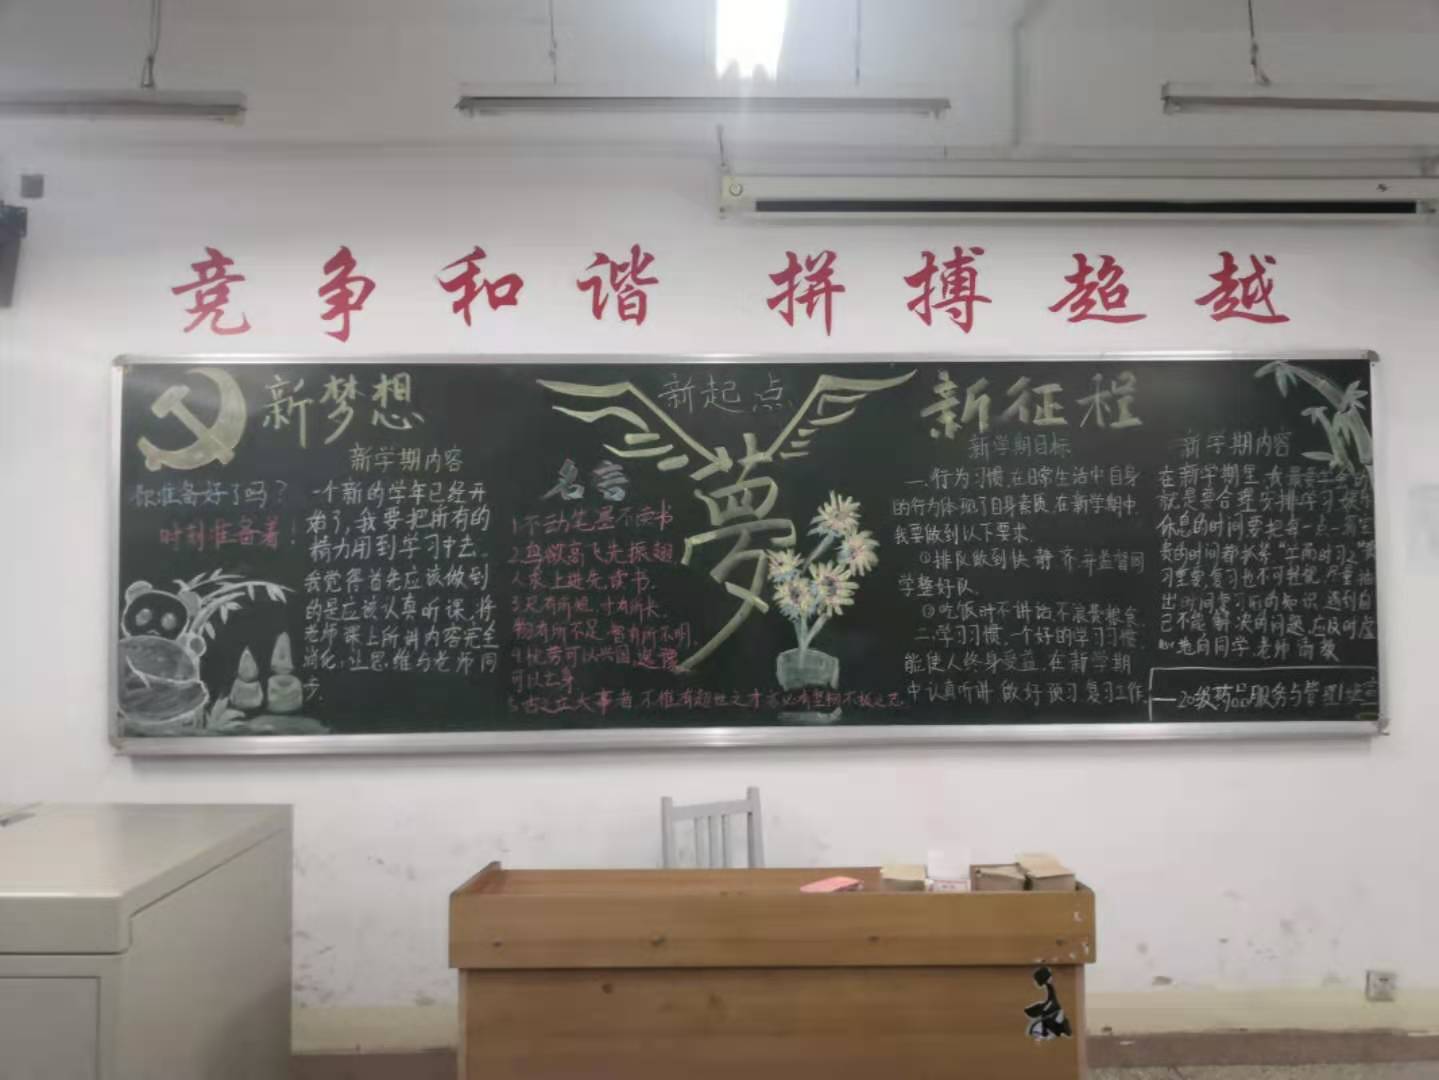 竞争和谐 拼搏超越
新梦想
新学期内容
你准备好了吗？
时刻准备着！
一个新的学年已经开
始了，我要把所有的
精力用到学习中去。
我觉得首先应该做到
的是应该认真听课，将
老师课上所讲内容完全
消化，让思维与老师同
步。
新起点
梦
名言
1.不动笔墨不读书
2.鸟欲高飞先振翅
人求上进先读书.
3.尺有所短，寸有所长.
物有所不足，智有所不明.
4.忧劳可以兴国,逸豫
可以亡身
5.古之立大事者,不惟有超世之才,亦必有坚韧不拔之志.
新征程
新学期目标
一、行为习惯,在日常生活中自身
的行为体现了自身素质,在新学期中,
我要做到以下要求.
①排队做到快 静 齐,并监督同
学整好队.
②吃饭时不讲话 不浪费粮食.
二、学习习惯,一个好的学习习惯,
能使人终身受益,在新学期
中认真听讲 做好预习 复习工作
新学期内容
在新学期里，我最
就是要合理安排学习 娱乐
休息的时间要把每一点一
的时间都抓紧“学而时习之”
习里要复习也不可轻视，尽量抽
出时间学习前的知识，遇到自
己不能解决的问题，应及时虚
心地向同学、老师请教
20级药品服务与管理1班宣